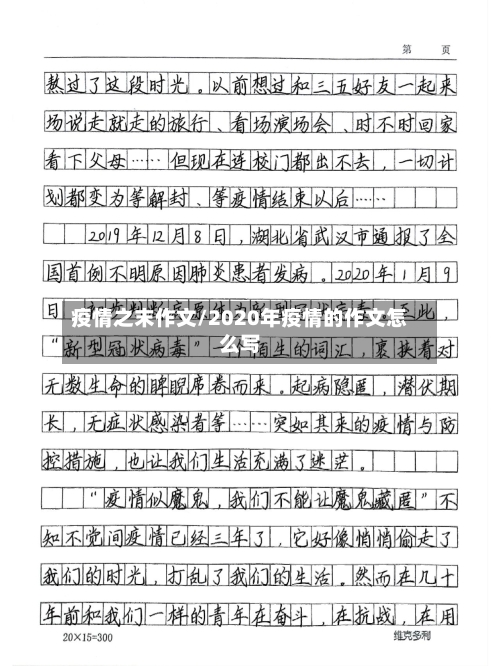 第 页
熬过了这段时光。以前想过和三五好友一起来
场说走就走的旅行、看场演场会、时不时回家
看下父母……但现在连校门都出不去,一切计
划都变为等解封、等疫情结束以后……
2019年12月8日,湖北省武汉市通报了全
国首例不明原因肺炎患者发病。2020年1月9
日
疫情之末作文/2020年疫情的作文怎
么写
至此,
“新型冠状病毒”
陌生的词汇,裹挟着对
无数生命的睥睨席卷而来。起病隐匿,潜伏期
长,无症状感染者等……突如其来的疫情与防
控措施,也让我们生活充满了迷茫。
“疫情似魔鬼,我们不能让魔鬼藏匿”不
知不觉间疫情已经三年了,它好像悄悄偷走了
我们的时光,打乱了我们的生活。然而在几十
年前和我们一样的青年在奋斗,在抗战,在用
20×15=300 维克多利